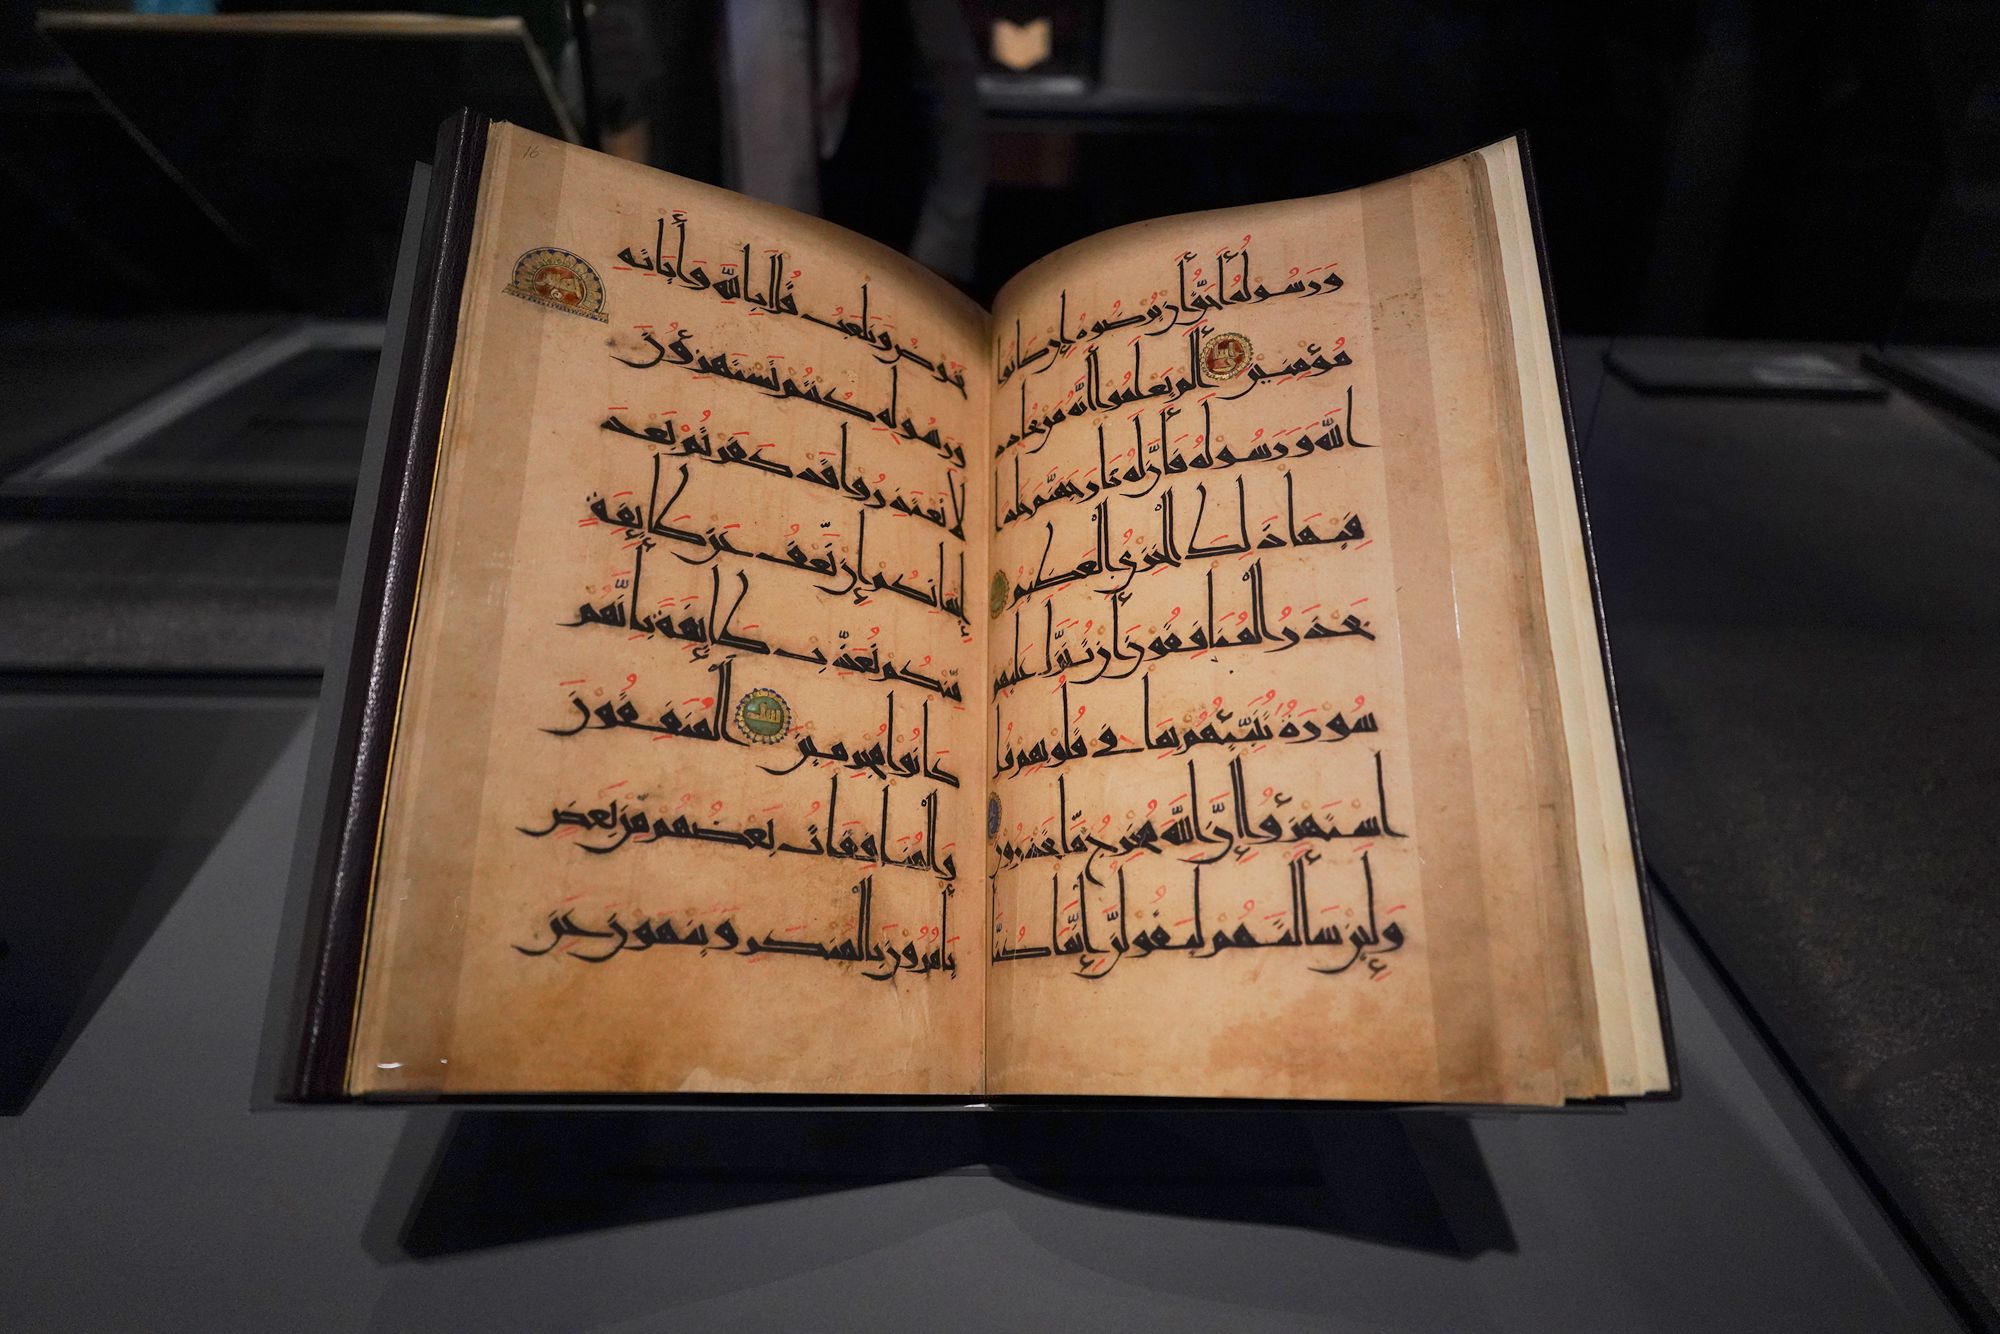 ورسوله أحق أن يرضوه إن كانوا
مؤمنين ألم يعلموا أنه من يحادد
الله ورسوله فأن له نار جهنم خلدا
فيها ذلك الخزي العظيم
يحذر المنافقون أن تنزل عليهم
سورة تنبئهم بما في قلوبهم قل
استهزؤا إن الله مخرج ما تحذرون
ولئن سألتهم ليقولن إنما كنا
16
نخوض ونلعب قل أبالله وأياته
ورسوله كنتم تستهزؤن
لا تعتذروا قد كفرتم بعد
إيمانكم إن نعف عن طائفة
منكم نعذب طائفة بأنهم
كانوا مجرمين المنفقون
والمنافقات بعضهم من بعض
يأمرون بالمنكر وينهون عن